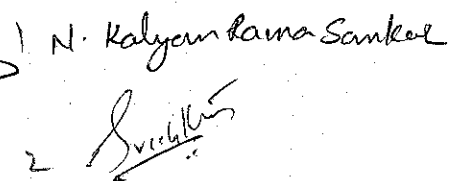 1 N. Kalyan Rama Sankar
2